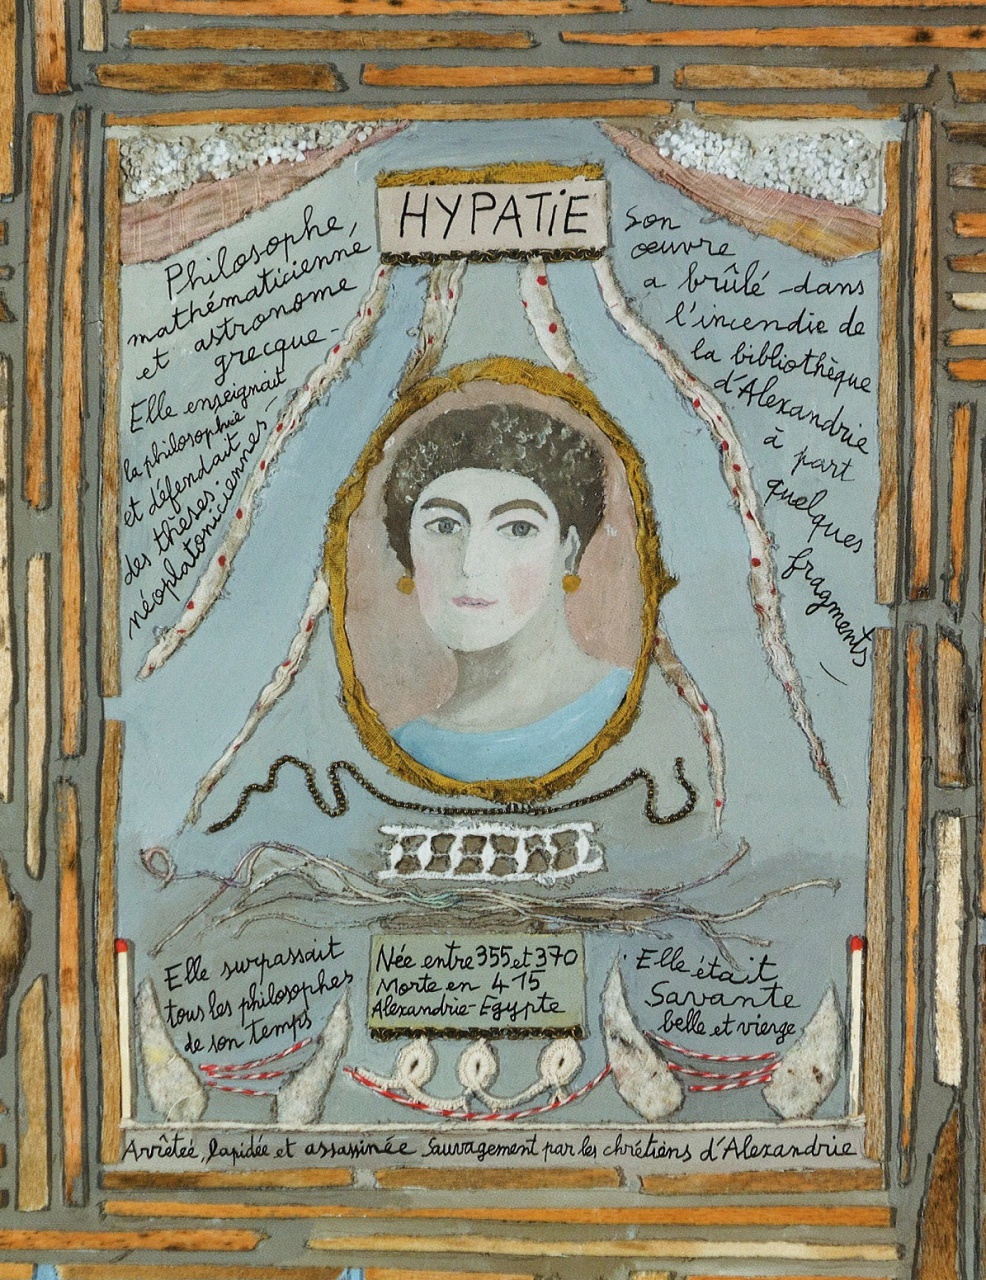 HYPATiE
Philosophe,
mathématicienne
et astronome
grecque -
Elle enseignait
la philosophie
et défendait
des thèses
néoplatoniciennes -
Son
œuvre
a brûlé dans
l'incendie de
la bibliothèque
d'Alexandrie
à part
quelques
fragments -
Elle surpassait
tous les philosophes
de son temps
Née entre 355 et 370
Morte en 415
Alexandrie-Egypte
Elle était
Savante
belle et vierge
Arrêteé, lapidée et assassinée Sauvagement par les chrétiens d'Alexandrie